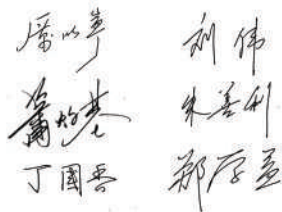 厉以宁 刘伟
萧灼基 朱善利
丁国香 郑学益